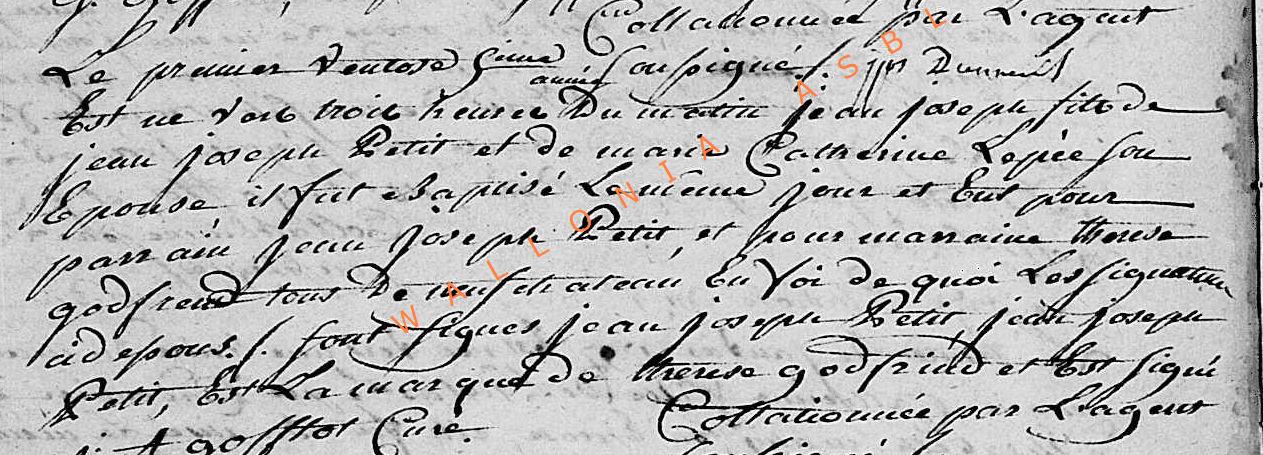 Collationnée par L'agent
Le premier Ventose 5ime année Soupigné /. jjs
Est né vers trois heures Du matin jean joseph fils de
jean joseph Petit et de marie Catherine Lepiée Son
Epouse il fut ebaptisé Le même jour et Eut pour
parrain jean joseph Petit, et pour marraine therese
godfrend tous De neufchateau En foi de quoi Les signatures
adepous. /. sont signes jean joseph Petit, jean joseph
Petit, Est La marque de therese godfrind et Est signé
j: gofftot Curé. Collationnée par L'agent
WALLONIA ASBL